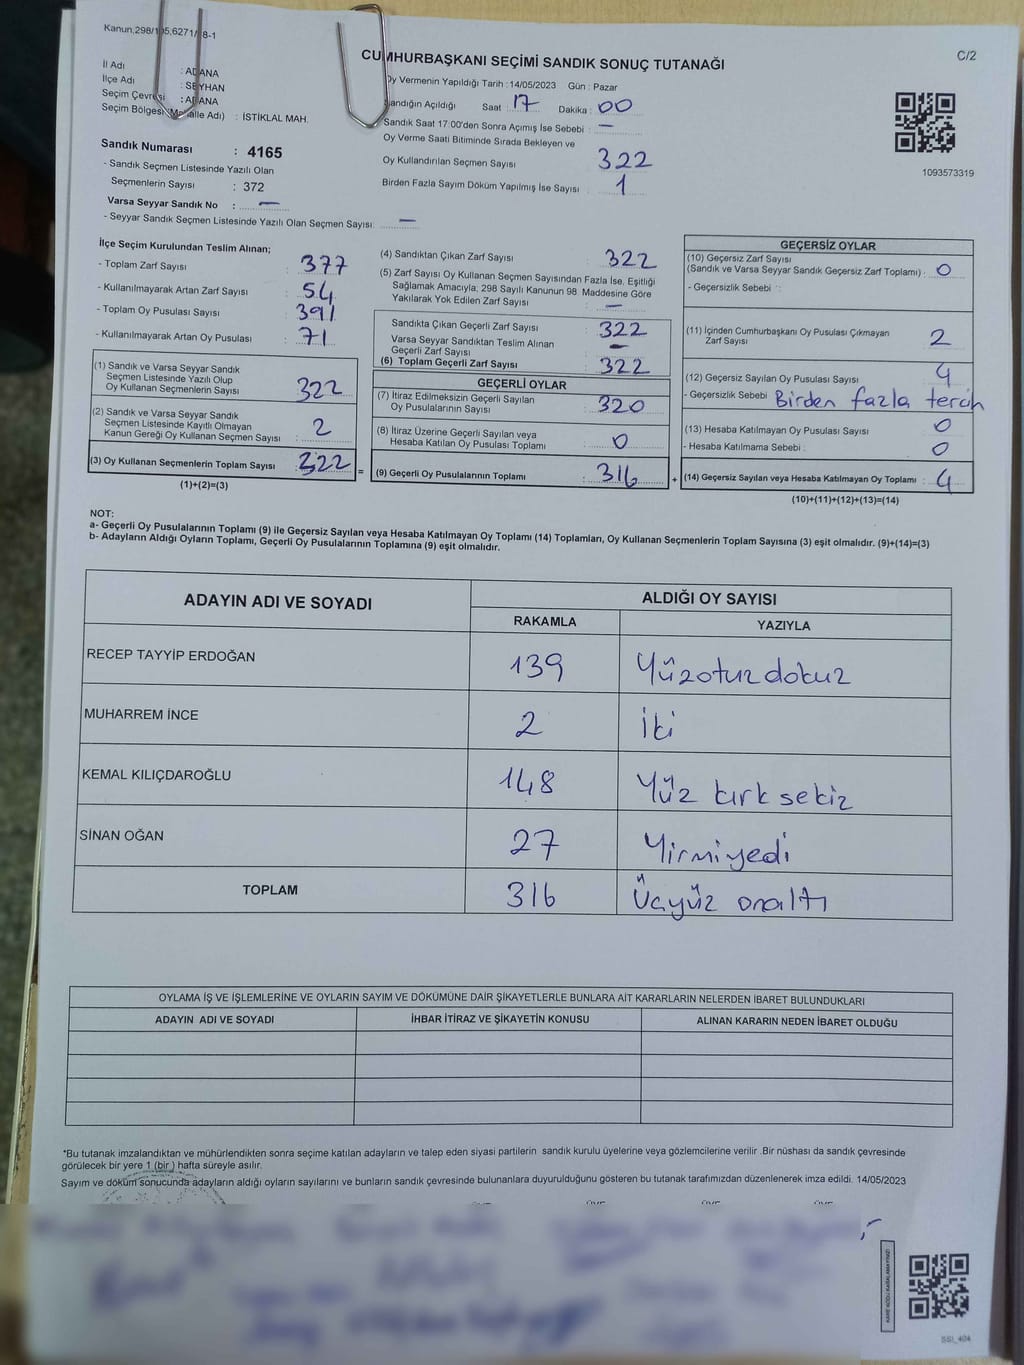 Kanun,298/105,6271/ 8-1
CUMHURBAŞKANI SEÇİMİ SANDIK SONUÇ TUTANAĞI
C/2
İl Adı : ADANA
İlçe Adı : SEYHAN
Seçim Çevresi : ADANA
Seçim Bölgesi (Mahalle Adı) : İSTİKLAL MAH.
Oy Vermenin Yapıldığı Tarih : 14/05/2023 Gün : Pazar
Sandığın Açıldığı Saat : 17 Dakika : 00
Sandık Saat 17:00'den Sonra Açımış İse Sebebi : —
Oy Verme Saati Bitiminde Sırada Bekleyen ve
Oy Kullandırılan Seçmen Sayısı 322
Birden Fazla Sayım Döküm Yapılmış İse Sayısı : 1
1093573319
Sandık Numarası : 4165
- Sandık Seçmen Listesinde Yazılı Olan
Seçmenlerin Sayısı : 372
Varsa Seyyar Sandık No : —
- Seyyar Sandık Seçmen Listesinde Yazılı Olan Seçmen Sayısı: —
İlçe Seçim Kurulundan Teslim Alınan;
- Toplam Zarf Sayısı : 377
- Kullanılmayarak Artan Zarf Sayısı : 54
- Toplam Oy Pusulası Sayısı : 391
- Kullanılmayarak Artan Oy Pusulası : 71
(1) Sandık ve Varsa Seyyar Sandık
Seçmen Listesinde Yazılı Olup
Oy Kullanan Seçmenlerin Sayısı : 322
(2) Sandık ve Varsa Seyyar Sandık
Seçmen Listesinde Kayıtlı Olmayan
Kanun Gereği Oy Kullanan Seçmen Sayısı : 2
(3) Oy Kullanan Seçmenlerin Toplam Sayısı : 322 =
(1)+(2)=(3)
(4) Sandıktan Çıkan Zarf Sayısı : 322
(5) Zarf Sayısı Oy Kullanan Seçmen Sayısından Fazla İse, Eşitliği
Sağlamak Amacıyla; 298 Sayılı Kanunun 98 Maddesine Göre
Yakılarak Yok Edilen Zarf Sayısı : —
Sandıkta Çıkan Geçerli Zarf Sayısı : 322
Varsa Seyyar Sandıktan Teslim Alınan
Geçerli Zarf Sayısı : —
(6) Toplam Geçerli Zarf Sayısı : 322
GEÇERLİ OYLAR
(7) İtiraz Edilmeksizin Geçerli Sayılan
Oy Pusulalarının Sayısı : 320
(8) İtiraz Üzerine Geçerli Sayılan veya
Hesaba Katılan Oy Pusulası Toplamı : 0
(9) Geçerli Oy Pusulalarının Toplamı : 316 +
GEÇERSİZ OYLAR
(10) Geçersiz Zarf Sayısı
(Sandık ve Varsa Seyyar Sandık Geçersiz Zarf Toplamı) : 0
- Geçersizlik Sebebi :
(11) İçinden Cumhurbaşkanı Oy Pusulası Çıkmayan
Zarf Sayısı : 2
(12) Geçersiz Sayılan Oy Pusulası Sayısı : 4
- Geçersizlik Sebebi Birden fazla tercih
(13) Hesaba Katılmayan Oy Pusulası Sayısı : 0
- Hesaba Katılmama Sebebi : 0
(14) Geçersiz Sayılan veya Hesaba Katılmayan Oy Toplamı : 4
(10)+(11)+(12)+(13)=(14)
NOT:
a- Geçerli Oy Pusulalarının Toplamı (9) ile Geçersiz Sayılan veya Hesaba Katılmayan Oy Toplamı (14) Toplamları, Oy Kullanan Seçmenlerin Toplam Sayısına (3) eşit olmalıdır. (9)+(14)=(3)
b- Adayların Aldığı Oyların Toplamı, Geçerli Oy Pusulalarının Toplamına (9) eşit olmalıdır.
ADAYIN ADI VE SOYADI
ALDIĞI OY SAYISI
RAKAMLA YAZIYLA
RECEP TAYYİP ERDOĞAN 139 Yüzotuzdokuz
MUHARREM İNCE 2 İki
KEMAL KILIÇDAROĞLU 148 Yüz kırk sekiz
SİNAN OĞAN 27 Yirmiyedi
TOPLAM 316 Üçyüz onaltı
OYLAMA İŞ VE İŞLEMLERİNE VE OYLARIN SAYIM VE DÖKÜMÜNE DAİR ŞİKAYETLERLE BUNLARA AİT KARARLARIN NELERDEN İBARET BULUNDUKLARI
ADAYIN ADI VE SOYADI İHBAR İTİRAZ VE ŞİKAYETİN KONUSU ALINAN KARARIN NEDEN İBARET OLDUĞU
*Bu tutanak imzalandıktan ve mühürlendikten sonra seçime katılan adayların ve talep eden siyasi partilerin sandık kurulu üyelerine veya gözlemcilerine verilir .Bir nüshası da sandık çevresinde
görülecek bir yere 1 (bir ) hafta süreyle asılır.
Sayım ve döküm sonucunda adayların aldığı oyların sayılarını ve bunların sandık çevresinde bulunanlara duyurulduğunu gösteren bu tutanak tarafımızdan düzenlenerek imza edildi. 14/05/2023
KARE KODU KARALAMAYINIZ!
SSI_404